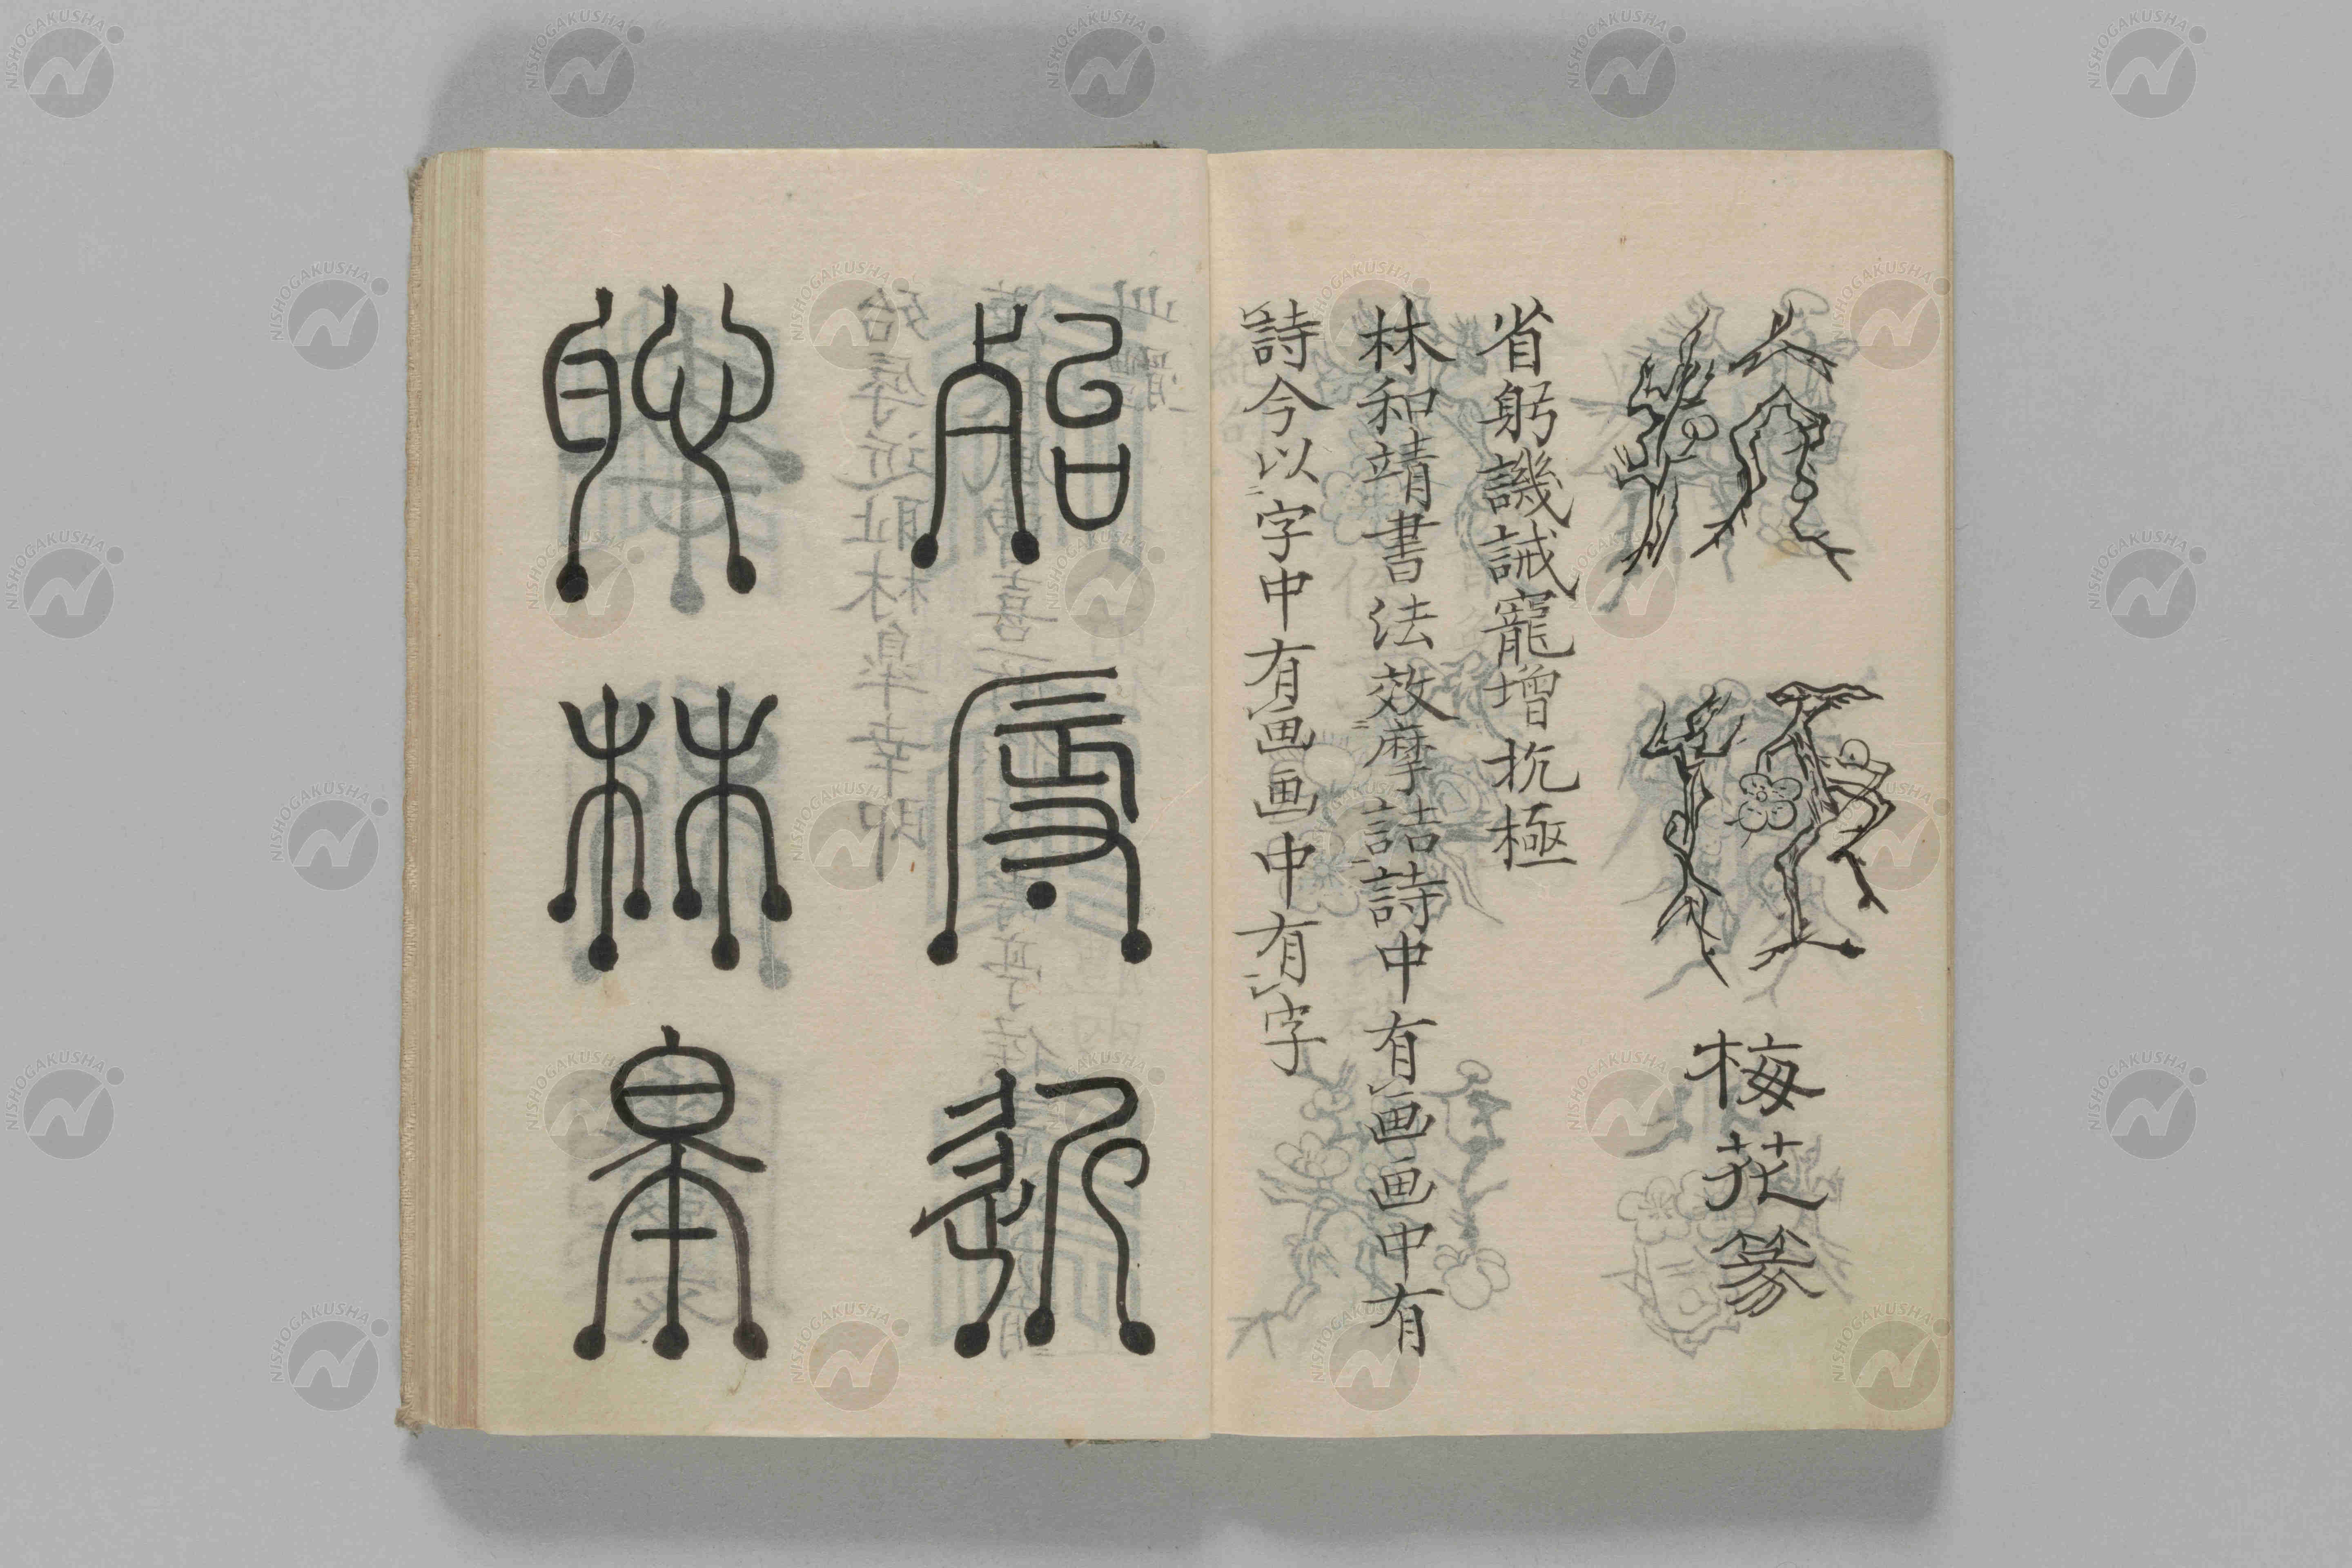 抗極 梅花篆
省躬譏誡寵增抗極
林和靖書法效摩詰詩中有画画中有
詩今以字中有画画中有字
殆辱近
恥林皋
NISHOGAKUSHA